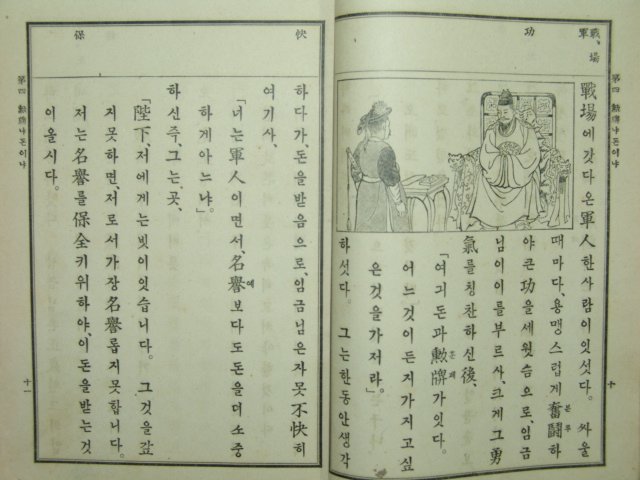 戰、場
軍
功
第四 勳牌냐돈이냐
戰場에갓다온軍人한사람이잇섯다。 싸울
때마다、용맹스럽게奮鬪하
분투
야큰功을세웟슴으로、임금
님이이를부르사、크게그勇
氣를칭찬하신後、
「여긔돈과勳牌가잇다。
훈패
어느것이든지가지고십
은것을가저라。」
하섯다。 그는한동안생각
十
快
保
하다가、돈을받음으로、임금님은자못不快히
여기사、
「너는軍人이면서、名譽보다도돈을더소중
예
하게아느냐。」
하신즉、그는곳、
「陛下、저에게는빗이잇습니다。 그것을갚
지못하면、저로서가장名譽롭지못합니다。
저는名譽를保全키위하야、이돈을받는것
이올시다。
第四 勳牌냐돈이냐
十一